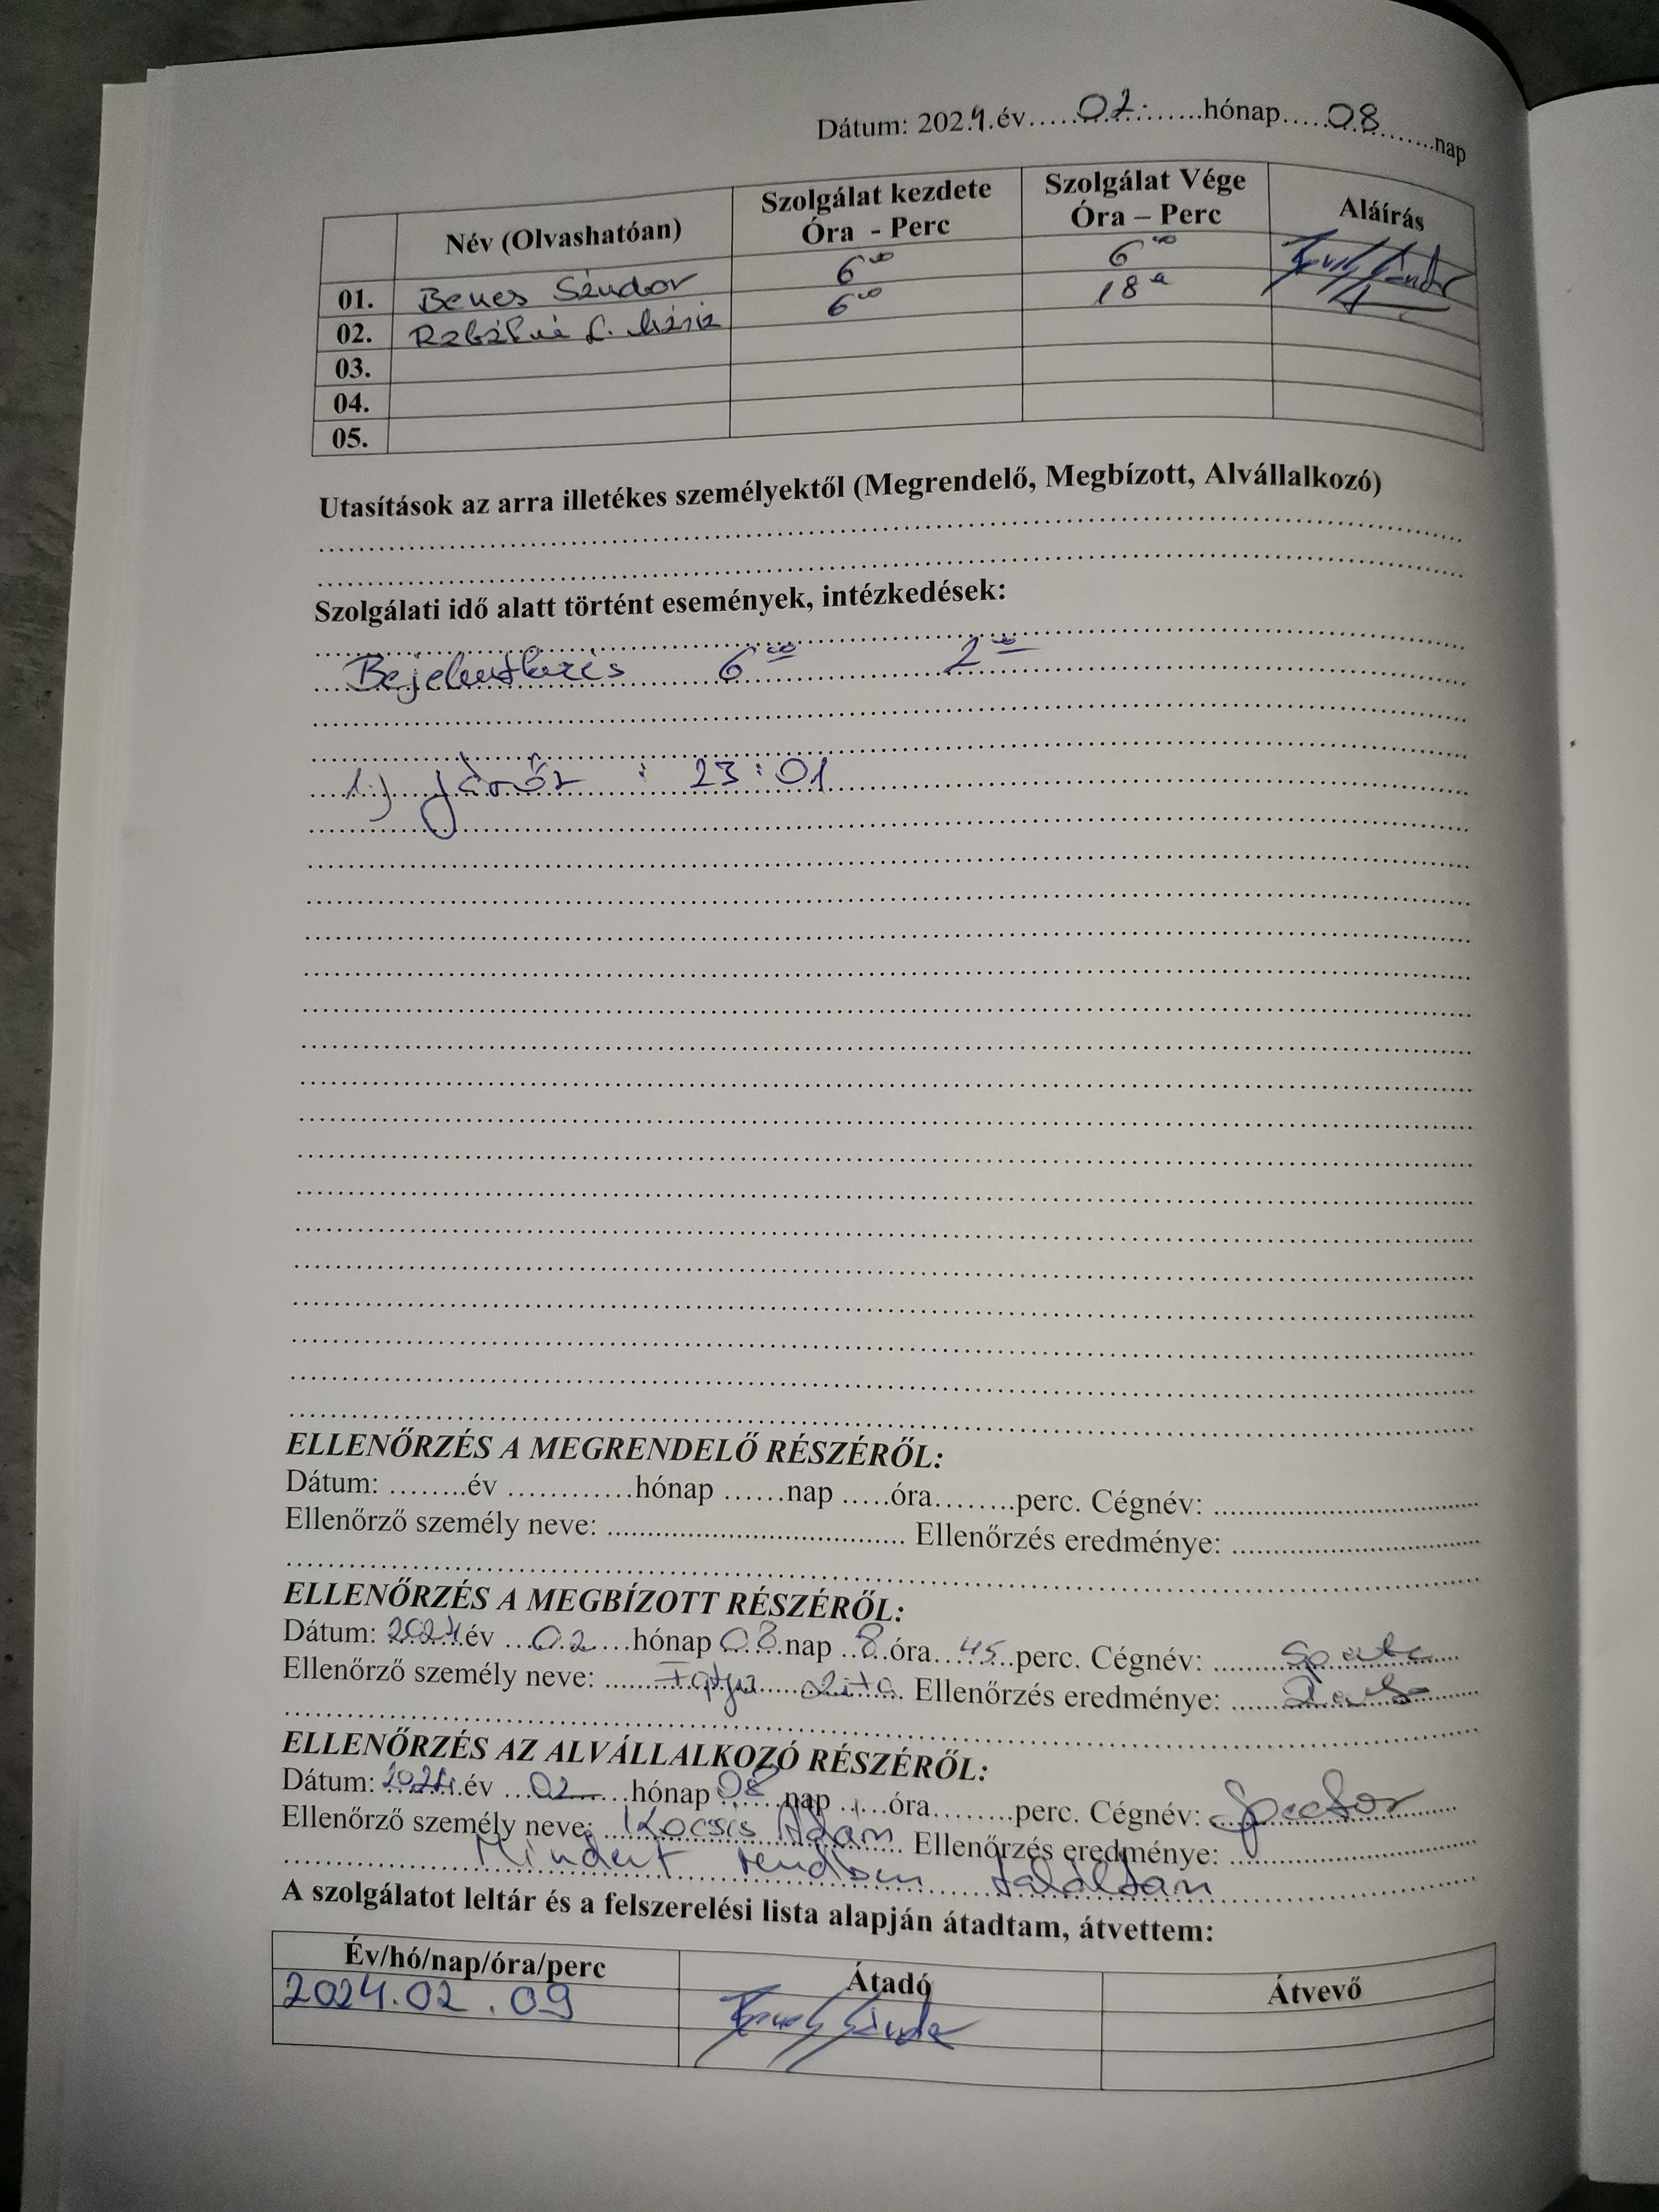 Dátum: 2024.év....02.....hónap....08....nap
Név (Olvashatóan) Szolgálat kezdete Óra - Perc Szolgálat Vége Óra – Perc Aláírás
01. Benes Sándor 6 00 6 00
02. 6 00 18
03.
04.
05.
Utasítások az arra illetékes személyektől (Megrendelő, Megbízott, Alvállalkozó)
Szolgálati idő alatt történt események, intézkedések:
Bejelentkezés 6 00 2 00
1.) járőr : 23:01
ELLENŐRZÉS A MEGRENDELŐ RÉSZÉRŐL:
Dátum: ........év ............hónap ......nap .....óra........perc. Cégnév: ..............................
Ellenőrző személy neve: .................................. Ellenőrzés eredménye: ..............................
ELLENŐRZÉS A MEGBÍZOTT RÉSZÉRŐL:
Dátum: 2024.év ...02....hónap 08.nap ..8.óra...45..perc. Cégnév:
Ellenőrző személy neve: Ellenőrzés eredménye:
ELLENŐRZÉS AZ ALVÁLLALKOZÓ RÉSZÉRŐL:
Dátum: 2024.év ...02...hónap 08 nap .....óra........perc. Cégnév:
Ellenőrző személy neve: Kocsis Ádám Ellenőrzés eredménye: ..............................
Mindent rendben találtam
A szolgálatot leltár és a felszerelési lista alapján átadtam, átvettem:
Év/hó/nap/óra/perc Átadó Átvevő
2024.02.09